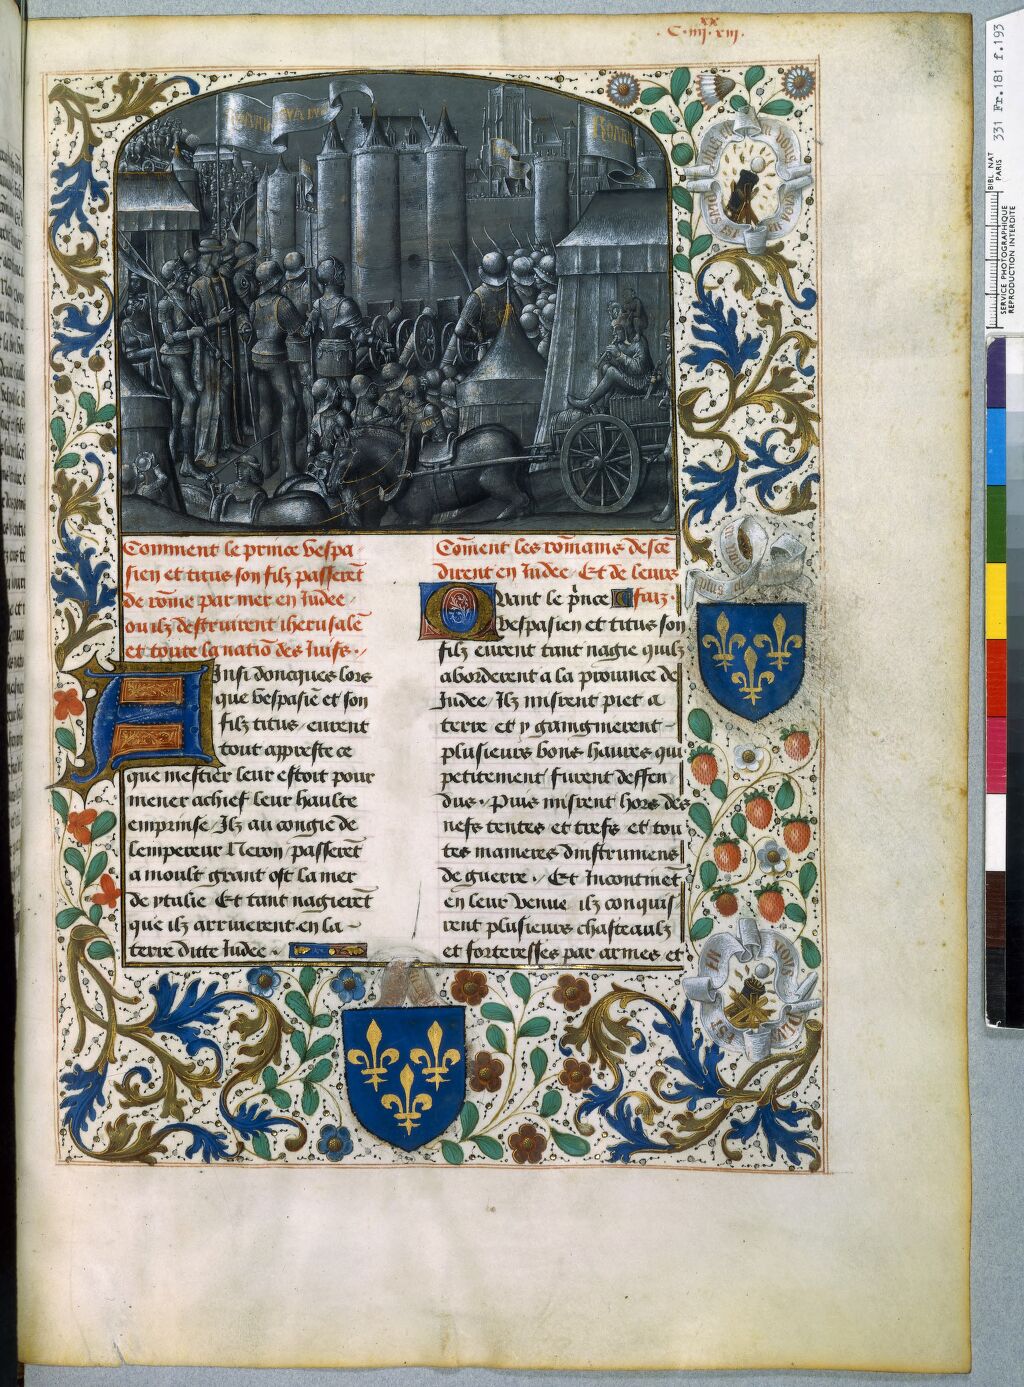 .C. iiij. xx xiij.
Comment le prince vespa
sien et titus son filz passerēt
de rōme par mer en Judee
ou ilz destruirent iherusalē
et toute la natiō des Juifs.
Ainsi doncques lors
que vespasiē et son
filz titus eurent
tout appreste ce
que mestier leur estoit pour
mener achief leur haulte
emprinse Ilz au congie de
lempereur Neron passerēt
a moult grant ost la mer
de ytalie Et tant nagierēt
que ilz arriuerent en la
terre ditte Judee.
Cōment les rōmains descē
dirent en Judee. Et de leurs
faiz.
Quant le p̄nce
vespasien et titus son
filz eurent tant nagie quilz
aborderent a la prouince de
Judee Ilz misrent piet a
terre et y gaingnierent
plusieurs bons haures qui
petitement furent deffen
dus. Puis misrent hors des
nefs tentes et trefs et tou
tes manieres dinstrumens
de guerre. Et Incontinēt
en leur venue ilz conquis
rent plusieurs chasteaulz
et forteresses par armes et
BIBL NAT
PARIS
331 Fr.181 f.193
SERVICE PHOTOGRAPHIQUE
REPRODUCTION INTERDITE